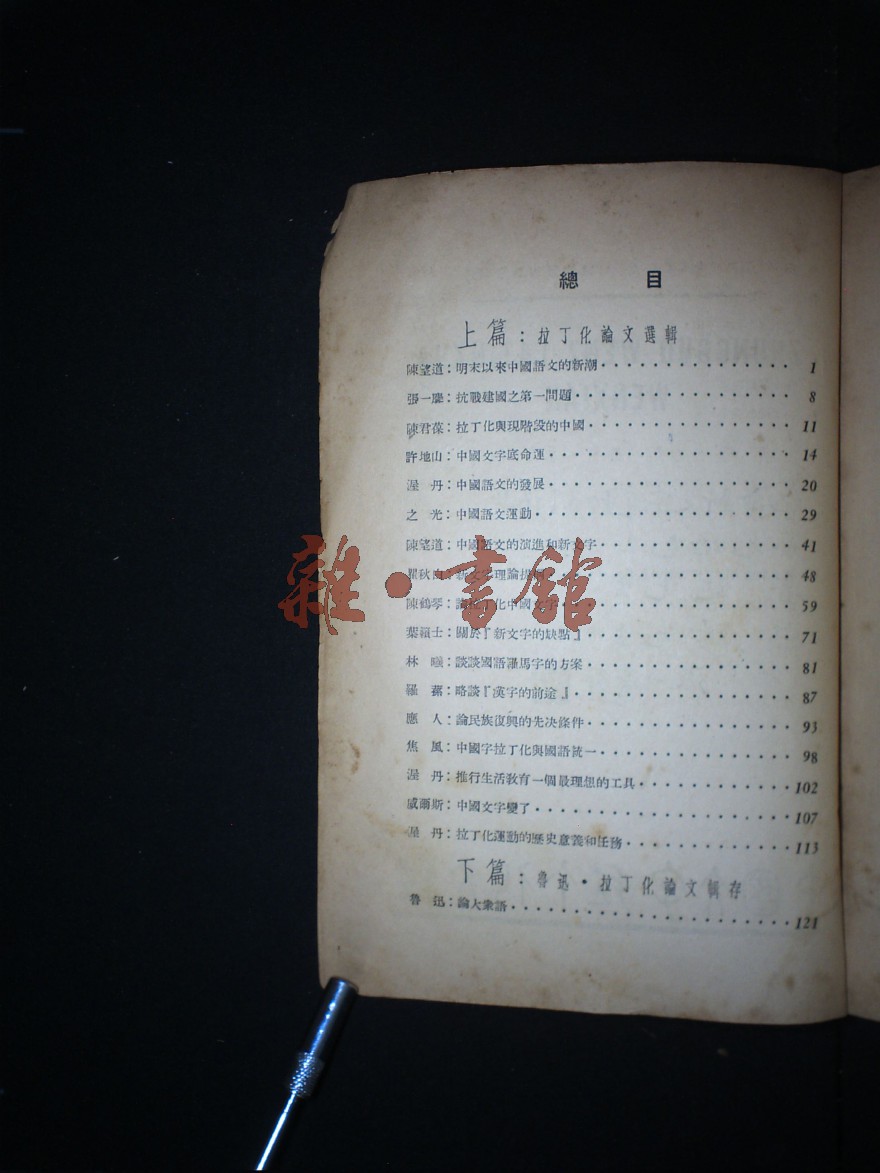 總目
上篇：拉丁化論文選輯
陳望道：明末以來中國語文的新潮 1
張一麐：抗戰建國之第一問題 8
陳君葆：拉丁化與現階設的中國 11
許地山：中國文字底命運 14
渥丹：中國語文的發展 20
之光：中國語文運動 29
陳望道：中國語文的演進和新文字 41
瞿秋白：新文字理論 48
陳鶴琴：論拉丁化中國文字 59
葉籟士：關於『新文字的缺點』 71
林曦：談談國語羅馬字的方案 81
羅：略談『漢字的前途』 87
應人：論民族復興的先决條件 93
焦風：中國字拉丁化與國語統一 98
渥丹：推行生活敎育一個最理想的工具 102
威爾斯：中國文字變了 107
渥丹：拉丁化運動的歷史意義和任務 113
下篇：魯迅・拉丁化論文輯存
魯迅：論大衆語 121
雜・書館